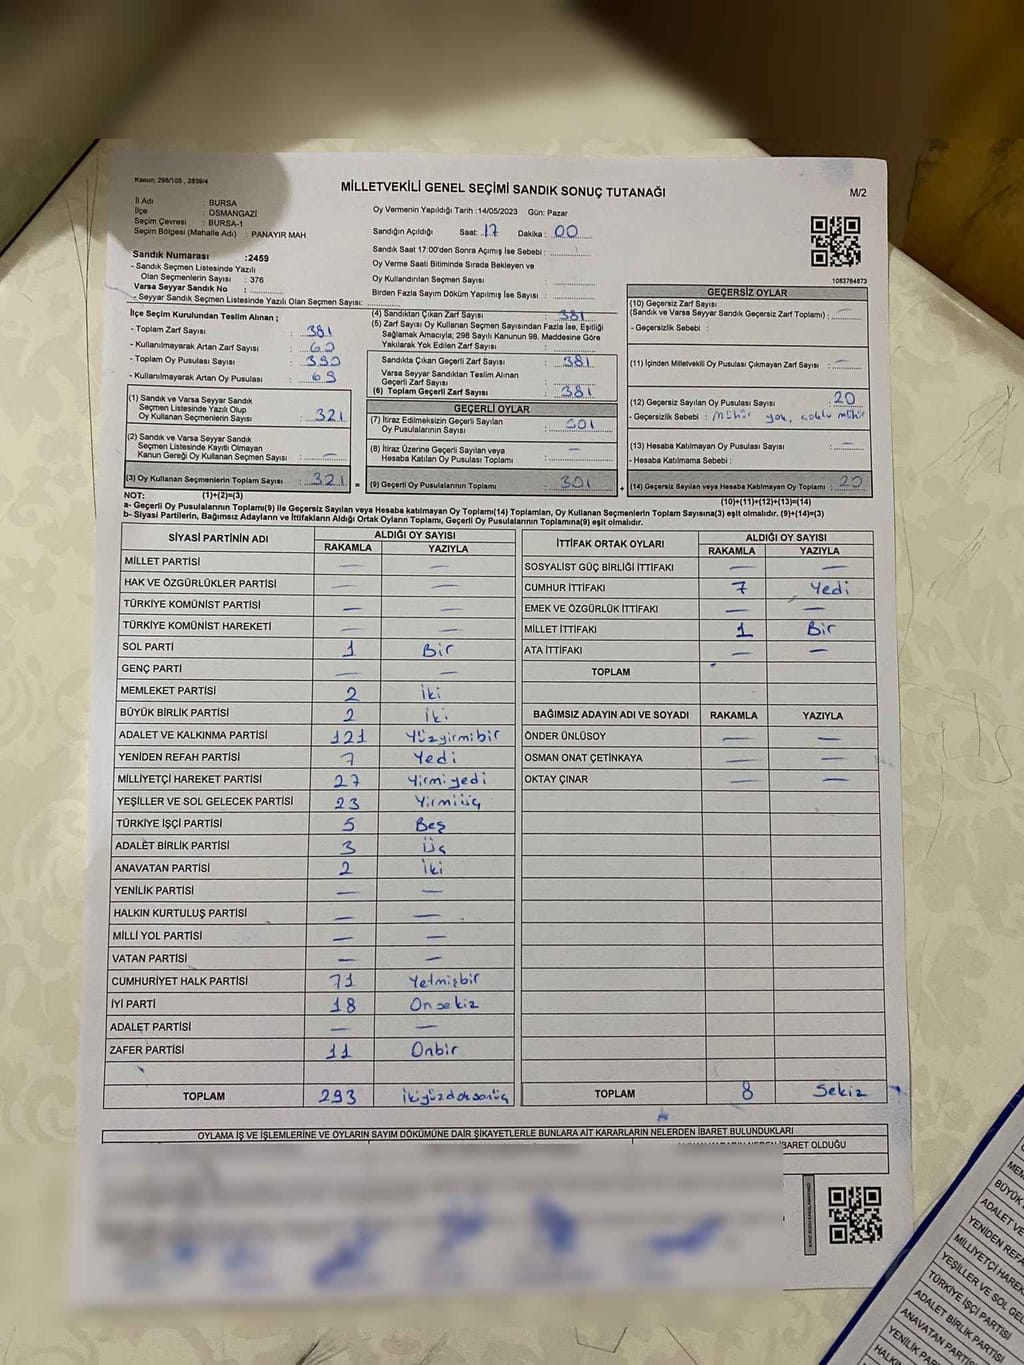 Kanun; 298/105 , 2839/4
MİLLETVEKİLİ GENEL SEÇİMİ SANDIK SONUÇ TUTANAĞI
M/2
İl Adı : BURSA
İlçe : OSMANGAZİ
Seçim Çevresi : BURSA-1
Seçim Bölgesi (Mahalle Adı) : PANAYIR MAH.
Oy Vermenin Yapıldığı Tarih :14/05/2023 Gün: Pazar
Sandığın Açıldığı Saat: 17 Dakika : 00
Sandık Saat 17:00'den Sonra Açımış İse Sebebi :
Oy Verme Saati Bitiminde Sırada Bekleyen ve
Oy Kullandırılan Seçmen Sayısı :
Birden Fazla Sayım Döküm Yapılmış İse Sayısı :
Sandık Numarası :2459
- Sandık Seçmen Listesinde Yazılı
Olan Seçmenlerin Sayısı : 376
Varsa Seyyar Sandık No :
- Seyyar Sandık Seçmen Listesinde Yazılı Olan Seçmen Sayısı:
İlçe Seçim Kurulundan Teslim Alınan ;
- Toplam Zarf Sayısı : 381
- Kullanılmayarak Artan Zarf Sayısı : 60
- Toplam Oy Pusulası Sayısı : 390
- Kullanılmayarak Artan Oy Pusulası : 69
(1) Sandık ve Varsa Seyyar Sandık
Seçmen Listesinde Yazılı Olup
Oy Kullanan Seçmenlerin Sayısı : 321
(2) Sandık ve Varsa Seyyar Sandık
Seçmen Listesinde Kayıtlı Olmayan
Kanun Gereği Oy Kullanan Seçmen Sayısı : —
(3) Oy Kullanan Seçmenlerin Toplam Sayısı : 321 =
(4) Sandıktan Çıkan Zarf Sayısı : 381
(5) Zarf Sayısı Oy Kullanan Seçmen Sayısından Fazla İse, Eşitliği
Sağlamak Amacıyla; 298 Sayılı Kanunun 98. Maddesine Göre
Yakılarak Yok Edilen Zarf Sayısı :
Sandıkta Çıkan Geçerli Zarf Sayısı : 381
Varsa Seyyar Sandıktan Teslim Alınan
Geçerli Zarf Sayısı :
(6) Toplam Geçerli Zarf Sayısı : 381
GEÇERLİ OYLAR
(7) İtiraz Edilmeksizin Geçerli Sayılan
Oy Pusulalarının Sayısı : 301
(8) İtiraz Üzerine Geçerli Sayılan veya
Hesaba Katılan Oy Pusulası Toplamı : —
(9) Geçerli Oy Pusulalarının Toplamı : 301 +
1083764673
GEÇERSİZ OYLAR
(10) Geçersiz Zarf Sayısı
(Sandık ve Varsa Seyyar Sandık Geçersiz Zarf Toplamı) : —
- Geçersizlik Sebebi :
(11) İçinden Milletvekili Oy Pusulası Çıkmayan Zarf Sayısı : —
(12) Geçersiz Sayılan Oy Pusulası Sayısı : 20
- Geçersizlik Sebebi : mühür yok, çoklu mühür
(13) Hesaba Katılmayan Oy Pusulası Sayısı : —
- Hesaba Katılmama Sebebi :
(14) Geçersiz Sayılan veya Hesaba Katılmayan Oy Toplamı : 20
NOT: (1)+(2)=(3)
(10)+(11)+(12)+(13)=(14)
a- Geçerli Oy Pusulalarının Toplamı(9) ile Geçersiz Sayılan veya Hesaba katılmayan Oy Toplamı(14) Toplamları, Oy Kullanan Seçmenlerin Toplam Sayısına(3) eşit olmalıdır. (9)+(14)=(3)
b- Siyasi Partilerin, Bağımsız Adayların ve İttifakların Aldığı Ortak Oyların Toplamı, Geçerli Oy Pusulalarının Toplamına(9) eşit olmalıdır.
SİYASİ PARTİNİN ADI ALDIĞI OY SAYISI
RAKAMLA YAZIYLA
MİLLET PARTİSİ — —
HAK VE ÖZGÜRLÜKLER PARTİSİ — —
TÜRKİYE KOMÜNİST PARTİSİ — —
TÜRKİYE KOMÜNİST HAREKETİ — —
SOL PARTİ 1 Bir
GENÇ PARTİ — —
MEMLEKET PARTİSİ 2 İki
BÜYÜK BİRLİK PARTİSİ 2 İki
ADALET VE KALKINMA PARTİSİ 121 Yüzyirmibir
YENİDEN REFAH PARTİSİ 7 Yedi
MİLLİYETÇİ HAREKET PARTİSİ 27 Yirmiyedi
YEŞİLLER VE SOL GELECEK PARTİSİ 23 Yirmiüç
TÜRKİYE İŞÇİ PARTİSİ 5 Beş
ADALET BİRLİK PARTİSİ 3 Üç
ANAVATAN PARTİSİ 2 İki
YENİLİK PARTİSİ — —
HALKIN KURTULUŞ PARTİSİ — —
MİLLİ YOL PARTİSİ — —
VATAN PARTİSİ — —
CUMHURİYET HALK PARTİSİ 71 Yetmişbir
İYİ PARTİ 18 Onsekiz
ADALET PARTİSİ — —
ZAFER PARTİSİ 11 Onbir
TOPLAM 293 İkiyüzdoksanüç
İTTİFAK ORTAK OYLARI ALDIĞI OY SAYISI
RAKAMLA YAZIYLA
SOSYALİST GÜÇ BİRLİĞİ İTTİFAKI — —
CUMHUR İTTİFAKI 7 Yedi
EMEK VE ÖZGÜRLÜK İTTİFAKI — —
MİLLET İTTİFAKI 1 Bir
ATA İTTİFAKI — —
TOPLAM
BAĞIMSIZ ADAYIN ADI VE SOYADI RAKAMLA YAZIYLA
ÖNDER ÜNLÜSOY — —
OSMAN ONAT ÇETİNKAYA — —
OKTAY ÇINAR — —
TOPLAM 8 Sekiz
OYLAMA İŞ VE İŞLEMLERİNE VE OYLARIN SAYIM DÖKÜMÜNE DAİR ŞİKAYETLERLE BUNLARA AİT KARARLARIN NELERDEN İBARET BULUNDUKLARI
İBARET OLDUĞU
BÜYÜK
ADALET VE
YENİDEN REFA
MİLLİYETÇİ HAREK
YEŞİLLER VE SOL GEL
TÜRKİYE İŞÇİ PARTİSİ
ADALET BİRLİK PARTİSİ
ANAVATAN PARTİSİ
YENİLİK PARTİSİ
HALK